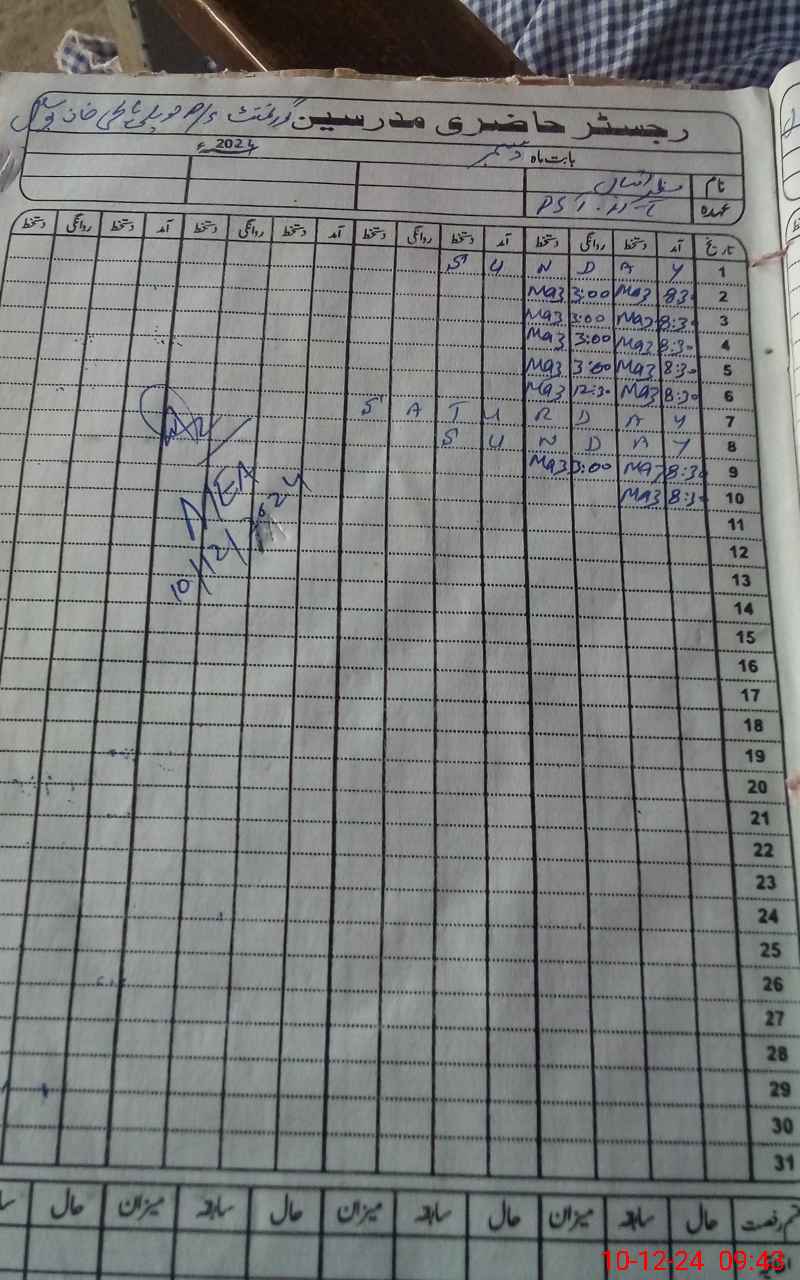 رجسٹر حاضری مدرسین گورنمنٹ P/S حویلی
بابت ماہ دسمبر 2024ء
نام
عہدہ PST
تاریخ آمد دستخط روانگی دستخط آمد دستخط روانگی دستخط آمد دستخط روانگی دستخط آمد دستخط روانگی دستخط
1 S U N D A Y
2 830 Maz 3:00 Maz
3 8:30 Maz 3:00 Maz
4 8:30 Maz 3:00 Maz
5 8:30 Maz 3:00 Maz
6 8:30 Maz 12:30 Maz
7 S A T U R D A Y
8 S U N D A Y
9 8:30 Maz 3:00 Maz
10 8:30 Maz
MEA
10/12/2024
11
12
13
14
15
16
17
18
19
20
21
22
23
24
25
26
27
28
29
30
31
قسم رخصت حال سابقہ میزان حال سابقہ میزان حال سابقہ میزان حال
10-12-24 09:43